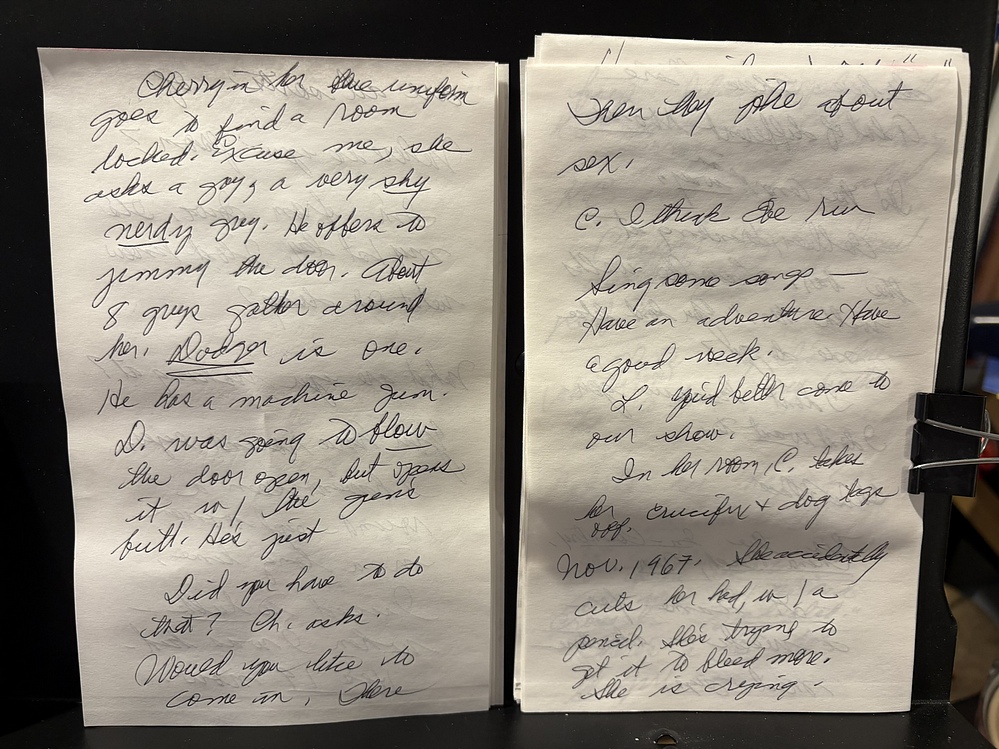 Cherry in her blue uniform
goes to find a room
locked. Excuse me, she
asks a guy, a very shy
nerdy guy. He offers to
jimmy the door. About
8 guys gather around
her. Dodger is one.
He has a machine gun.
D. was going to blow
the door open, but opens
it w/ the gun's
butt. He's just
Did you have to do
that? Ch. asks.
Would you like to
come in, there
Then they joke about
sex.
C. I think the run
Sing some songs —
Have an adventure. Have
a good week.
L. you'd better come to
our show.
In her room, C. takes
her crucifix + dog tags
off.
Nov. 1967. She accidently
cuts her hand, w/ a
pencil. She's trying to
get it to bleed more.
She is crying.